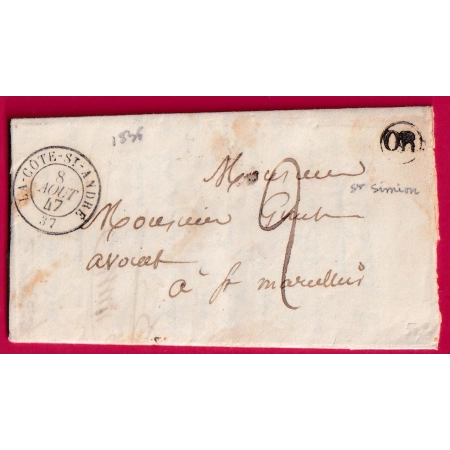 1836
OR
LA-COTE-ST-ANDRÉ
8
AOUT
47
37
Monsieur
St Simion
Monsieur
avocat
à St marcellin
2